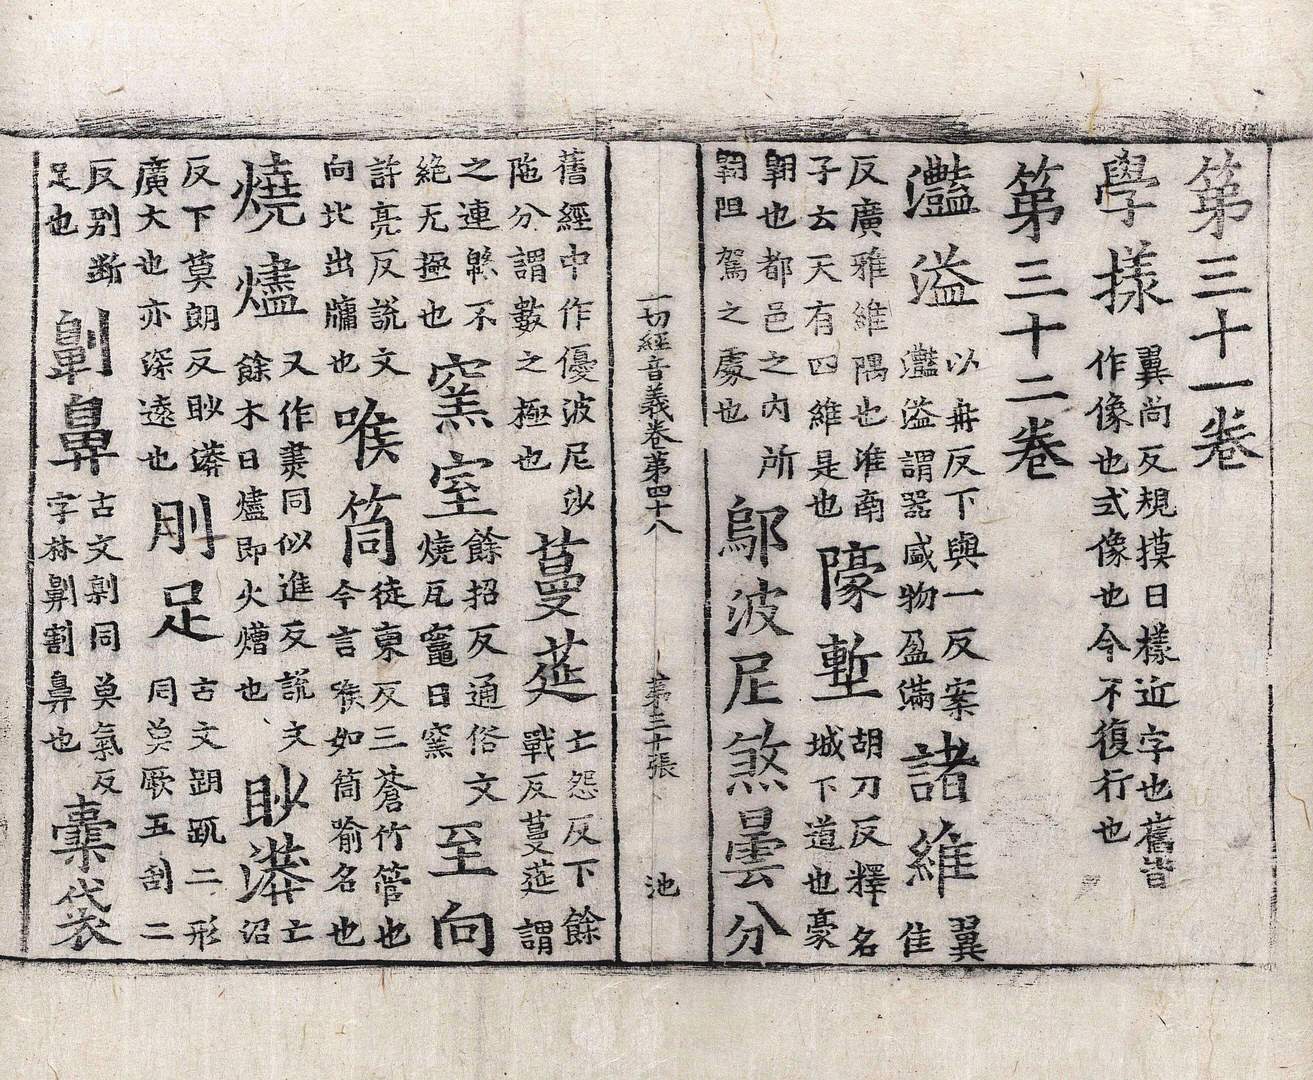 第三十一卷
學樣翼尚反規摸曰樣近字也舊皆作像也式像也今不復行也
第三十二卷
灩溢以冉反下與一反案灩溢謂器盛物盈滿諸維翼隹
反廣雅維隅也淮南子云天有四維是也壕塹胡刀反釋名城下道也豪
翱也都邑之內所翱阻駕之處也鄔波尼煞曇分
一切經音義卷第四十八 第三十張 池
舊經中作優波尼沙陁分謂數之極也蔓莚亡怨反下餘戰反蔓莚謂
之連緜不絶无極也窯室餘招反通俗文燒瓦竈曰窯至向
許亮反說文向北出牖也喉筒徒東反三蒼竹管也今言喉如筒喻名也
燒燼又作㶳同似進反說文餘木曰燼即火燼也眇漭亡沼
反下莫朗反眇漭廣大也亦深遠也刖足古文跀二形同莫厥五刮二
反別斷足也劓鼻古文劓同莫氣反字林劓割鼻也橐袋